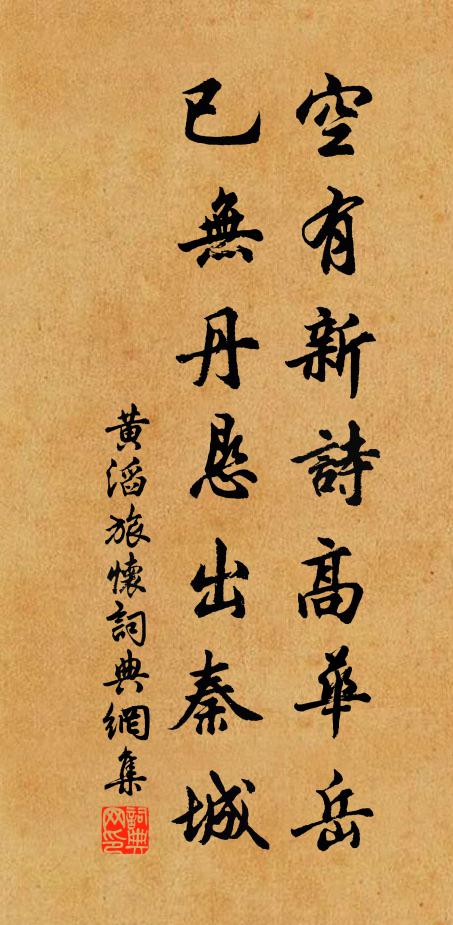 空有新詩高華岳
已無丹恳出秦城
黃滔旅懷詞典網集
詞典网印